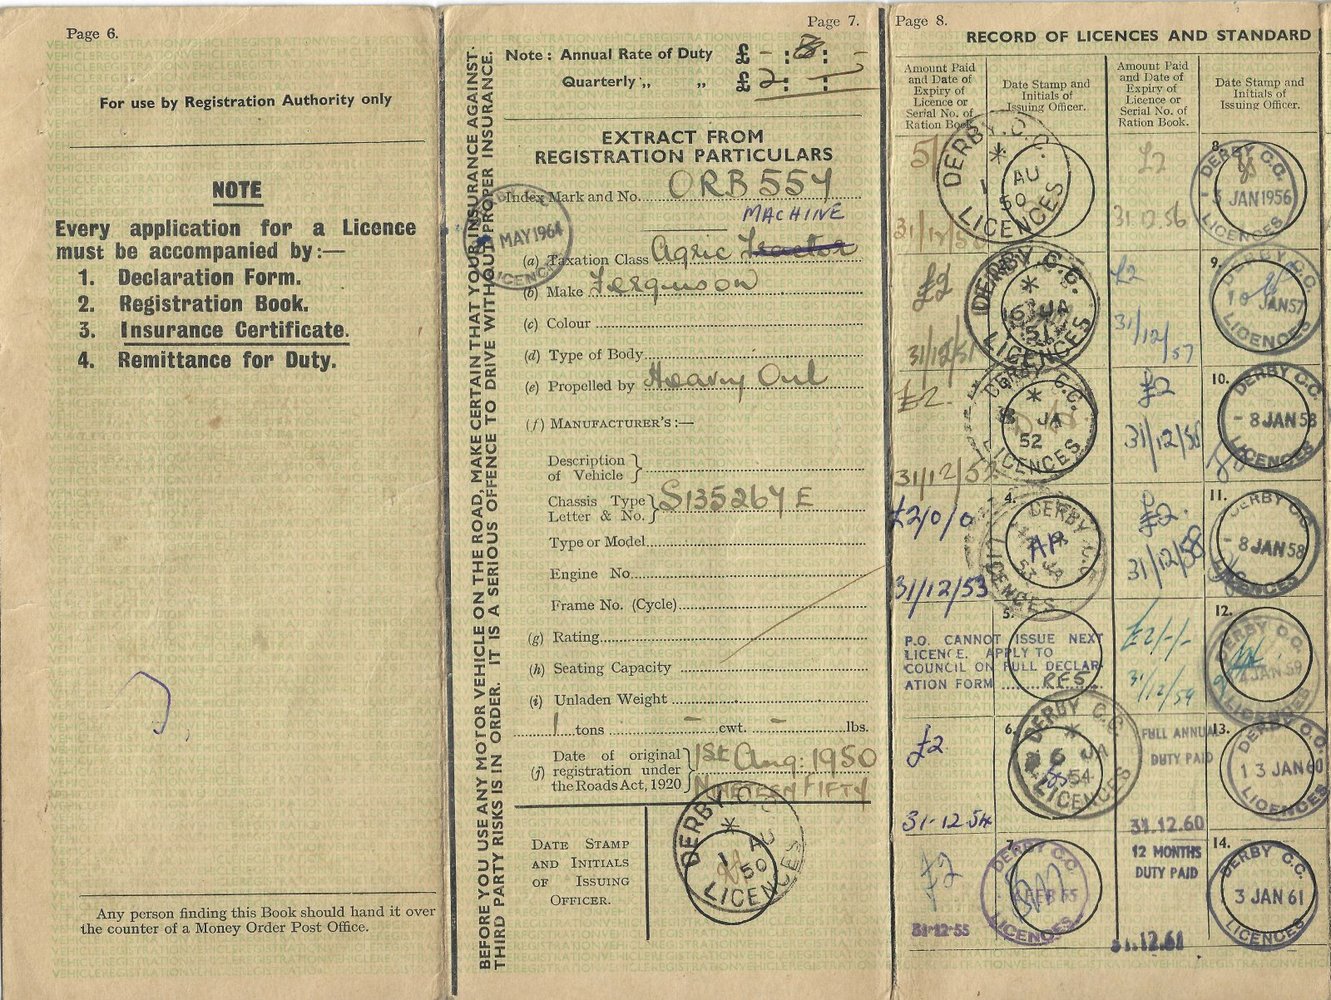 Page 6.
For use by Registration Authority only
NOTE
Every application for a Licence
must be accompanied by:—
1. Declaration Form.
2. Registration Book.
3. Insurance Certificate.
4. Remittance for Duty.
Any person finding this Book should hand it over
the counter of a Money Order Post Office.
BEFORE YOU USE ANY MOTOR VEHICLE ON THE ROAD, MAKE CERTAIN THAT YOUR INSURANCE AGAINST
THIRD PARTY RISKS IS IN ORDER. IT IS A SERIOUS OFFENCE TO DRIVE WITHOUT PROPER INSURANCE.
Page 7.
Note: Annual Rate of Duty £ - : 8 : -
Quarterly „ „ £ 2 : : -
EXTRACT FROM
REGISTRATION PARTICULARS
Index Mark and No. ORB 554
MACHINE
MAY 1964
(a) Taxation Class Agric Tractor
(b) Make Ferguson
(c) Colour
(d) Type of Body
(e) Propelled by Heavy Oil
(f) MANUFACTURER'S :—
Description
of Vehicle
Chassis Type
Letter & No. S135267 E
Type or Model
Engine No.
Frame No. (Cycle)
(g) Rating
(h) Seating Capacity
(i) Unladen Weight
1 tons - cwt. - lbs.
(j) Date of original
registration under
the Roads Act, 1920
1st Aug: 1950
NINETEEN FIFTY
DATE STAMP
AND INITIALS
OF ISSUING
OFFICER.
DERBY C.C.
1 AU
50
LICENCES
Page 8.
RECORD OF LICENCES AND STANDARD
Amount Paid
and Date of
Expiry of
Licence or
Serial No. of
Ration Book.
Date Stamp and
Initials of
Issuing Officer.
Amount Paid
and Date of
Expiry of
Licence or
Serial No. of
Ration Book.
Date Stamp and
Initials of
Issuing Officer.
5/
31/12/50
DERBY C.C.
1 AU
50
LICENCES
£2
31/12/51
DERBY C.C.
16 JA
51
LICENCES
£2
31/12/52
DERBY C.C.
JA
52
LICENCES
£2/0/0
31/12/53
4.
DERBY C.C.
JA
53
LICENCES
5.
P.O. CANNOT ISSUE NEXT
LICENCE. APPLY TO
COUNCIL ON FULL DECLAR-
ATION FORM RF5.
£2
31-12-54
6.
DERBY C.C.
6 JA
54
LICENCES
£2
31-12-55
7.
DERBY C.C.
FEB 55
LICENCES
£2
31.12.56
8.
DERBY C.C.
- 3 JAN 1956
LICENCES
£2
31/12/57
9.
DERBY C.C.
10 JAN 57
LICENCES
£2
31/12/58
10.
DERBY C.C.
- 8 JAN 58
LICENCES
£2
31/12/58
11.
DERBY C.C.
- 8 JAN 58
LICENCES
£2/-/-
31/12/59
12.
DERBY C.C.
JAN 59
LICENCES
FULL ANNUAL
DUTY PAID
31.12.60
13.
DERBY C.C.
13 JAN 60
LICENCES
12 MONTHS
DUTY PAID
31.12.61
14.
DERBY C.C.
3 JAN 61
LICENCES